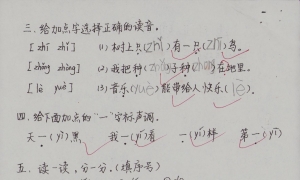 三、给加点字选择正确的读音。
[zhī zhǐ] (1)树上只(zhǐ)有一只(zhī)鸟。
[zhǒng zhòng] (2)我把种(zhǒng)子种(zhòng)在地里。
[lè yuè] (3)音乐(yuè)能带给人快乐(lè)。
四、给下面加点的“一”字标声调。
天一(yí)黑 我一(yí)看 一(yí)样 第一(yī)
五、读一读,分一分。(填序号)